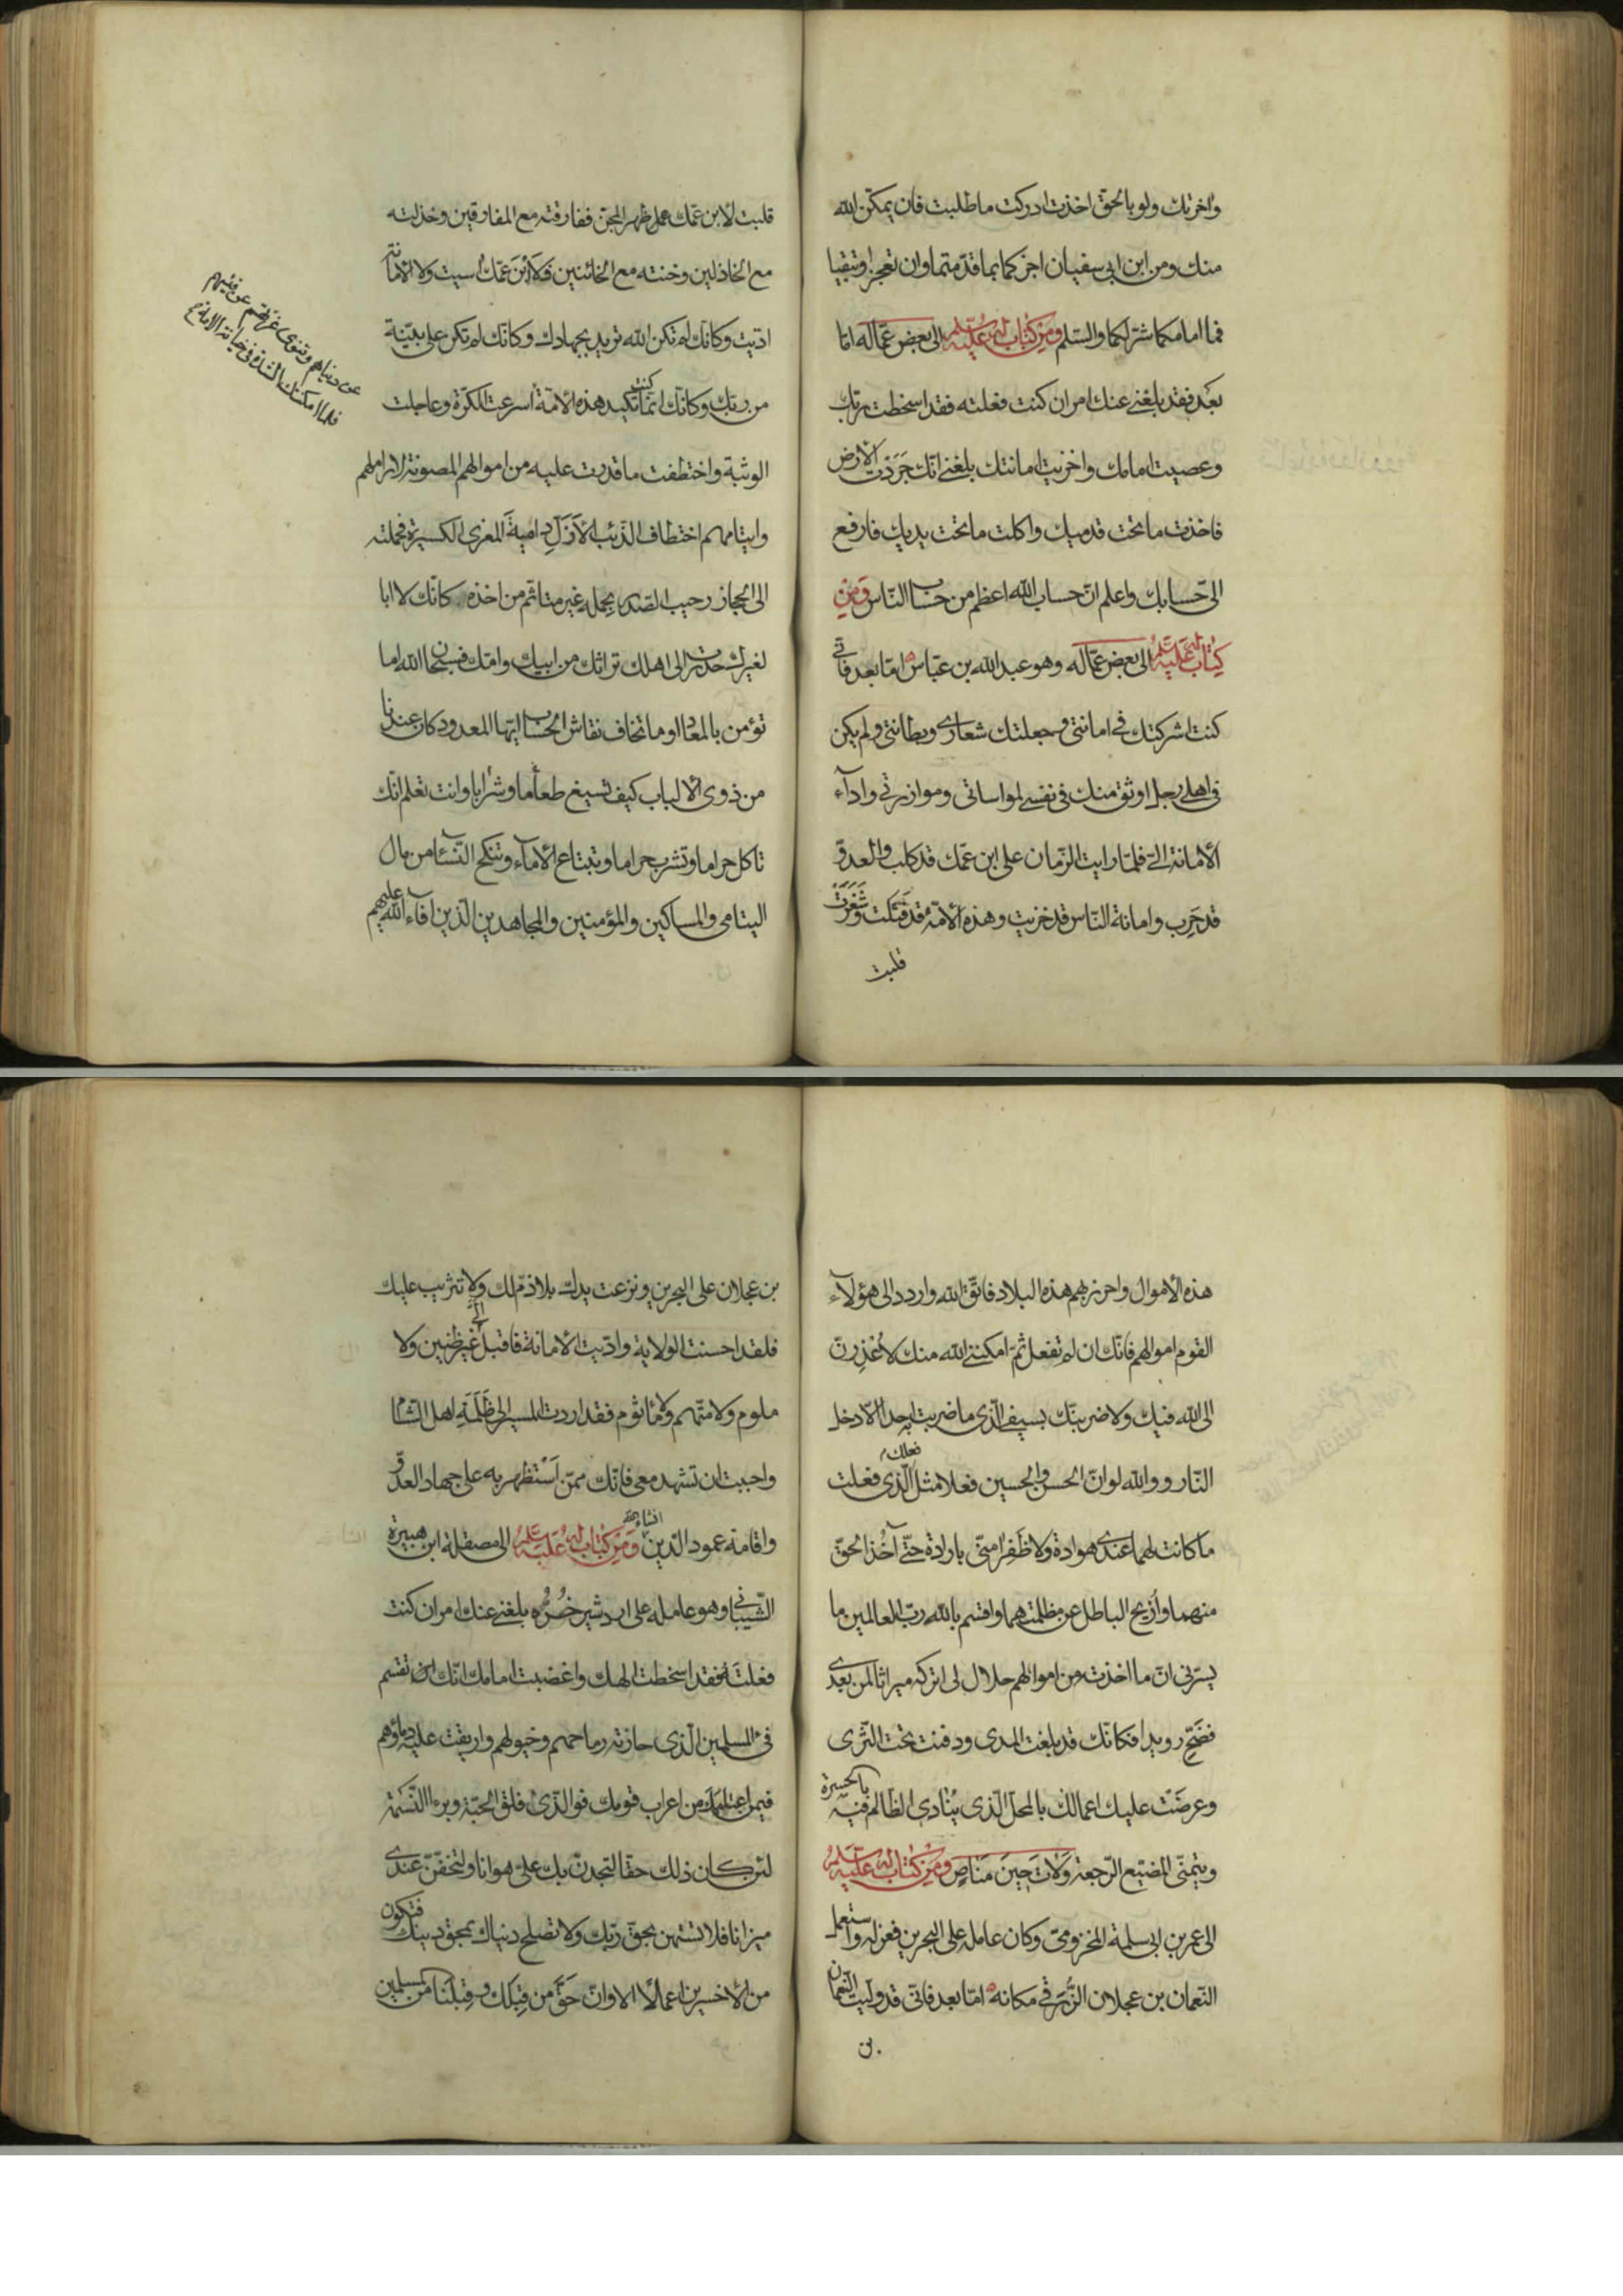 واخرتك ولو بالحق اخذت ادركت ما طلبت فان يمكّن الله
منك ومن ابن ابى سفيان اجزكما بما قدّمتما وان تعجزا وتبقيا
فما امامكما شرّ لكما والسّلم ومن كتاب له عليه السلم الى بعض عمّاله امّا
بعد فقد بلغنى عنك امر ان كنت فعلته فقد اسخطت ربّك
وعصيت امامك واخزيت امانتك بلغنى انّك جَرَدْتَ الارض
فاخذت ما تحت قدميك واكلت ما تحت يديك فارفع
الىّ حسابك واعلم انّ حساب الله اعظم من حساب النّاس وَمِن
كتاب له عليه السلم الى بعض عمّاله وهو عبد الله بن عبّاس امّا بعد فانّى
كنت اشركتك فى امانتى وجعلتك شعارى وبطانتى ولم يكن
فى اهلى رجل اوثق منك فى نفسى لمواساتى وموازرتى واداء
الامانة الىّ فلمّا رايت الزّمان على ابن عمّك قد كلب والعدوّ
قد حَرِب وامانة النّاس قد خزيت وهذه الامّة قد فَنَكت وشَغَرَت
قلبت
قلبت لابن عمّك ظهر المجنّ ففارقته مع المفارقين وخذلته
مع الخاذلين وخنته مع الخائنين فلا ابْنَ عمّك اسيت ولا الامانة
ادّيت وكانّك لم تكن الله تريد بجهادك وكانّك لم تكن على بيّنة
من ربّك وكانّك انّما كنت تكيد هذه الامّة اسرعت الكرّة وعاجلت
عن دنياهم وتنوى غرّتهم عن فيئهم
فلما امكنتك الشدة فى خيانة الامة
الوثبة واختطفت ما قدرت عليه من اموالهم المصونة لاراملهم
وايتامهم اختطاف الذّئب الأزَلّ دامية المعزى الكسيرة فحملته
الى الحجاز رحيب الصّدر بحمله غير متاثّم من اخذه كانّك لا ابا
لغيرك حدرت الى اهلك تراثك من ابيك وامّك فسبحان الله اما
تؤمن بالمعاد او ما تخاف نقاش الحساب ايّها المعدود كان عندنا
من ذوى الالباب كيف تسيغ طعاما وشرابا وانت تعلم انّك
تاكل حراما وتشرب حراما وتبتاع الاماء وتنكح النّساء من مال
اليتامى والمساكين والمؤمنين والمجاهدين الّذين افاء الله عليهم
هذه الاموال واحرز بهم هذه البلاد فاتّق الله واردد الى هؤلاء
القوم اموالهم فانّك ان لم تفعل ثمّ امكننى الله منك لأُعْذِرَنّ
الى الله فيك ولاضربنّك بسيفى الّذى ما ضربت به احدا الّا دخل
النّار ووالله لو انّ الحسن والحسين فعلا مثل فعلك الّذى فعلت
ما كانت لهما عندى هوادة ولا ظَفِرا منّى بارادة حتّى آخُذ الحقّ
منهما وأزيح الباطل عن مظلمتهما واقسم بالله ربّ العالمين ما
يسرّنى انّ ما اخذت من اموالهم حلال لى اتركه ميراثا لمن بعدى
فضَحّ رويدا فكانّك قد بلغت المدى ودفنت تحت الثّرى
وعرضَتْ عليك اعمالك بالمحلّ الّذى يُنادى الظّالم فيه بالحسرة
ويتمنّى المضيّع الرّجعة وَلاتَ حِينَ مَنَاصٍ ومن كتاب له عليه السلم
الى عمر بن ابى سلمة المخزومى وكان عامله على البحرين فعزله واستعمل
النّعمان بن عجلان الزُّرَقى مكانه امّا بعد فانّى قد ولّيت النّعمان
بن
بن عجلان على البحرين ونزعت يدك بلا ذمّ لك ولا تثريب عليك
فلقد احسنت الولاية وادّيت الامانة فاقبل الىّ غير ظنين ولا
ملوم ولا متّهم ولا مأثوم فقد اردت المسير الى ظَلَمَةِ اهل الشّام
واحببت ان تشهد معى فانّك ممّن أسْتظهر به على جهاد العدوّ
واقامة عمود الدّين انشاء الله وَمِن كتاب له عليه السلم الى مصقلة ابن هبيرة
الشّيبانى وهو عامله على اردشير خُرّه بلغنى عنك امر ان كنت
فعلتَهُ فقد اسخطت الهك واغضبت امامك انّك تقسم
فىء المسلمين الّذى حازته رماحهم وخيولهم واريقت عليه دماؤهم
فيمن اعتامك من اعراب قومك فوالّذى فلق الحبّة وبرء النّسَمَة
لئن كان ذلك حقّا لتجدنّ بك علىّ هوانا ولتخفّنّ عندى
ميزانا فلا تستهن بحقّ ربّك ولا تصلح دنياك بمحق دينك فتكون
من الاخسرين اعمالًا الا وانّ حَقّ من قِبَلك وقِبَلنا من المسلمين